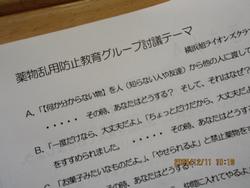 薬物乱用防止教育グループ討議テーマ
横浜旭ライオンズクラ
A、「【何か分からない物】を人（知らない人や友達）から他の人に渡して
・・・・・ その時、あなたはどうする？ そして、それはなぜ？
B、「一度だけなら、大丈夫だよ」「ちょっとだけだから、大丈夫
をすすめられました。 ・・・・・ その時、あなたはどう
C、「お菓子みたいなものだよ。」「やせられるよ」と禁止薬
その時、あなたはどうする？
仲間に入れてあ
11 10:18